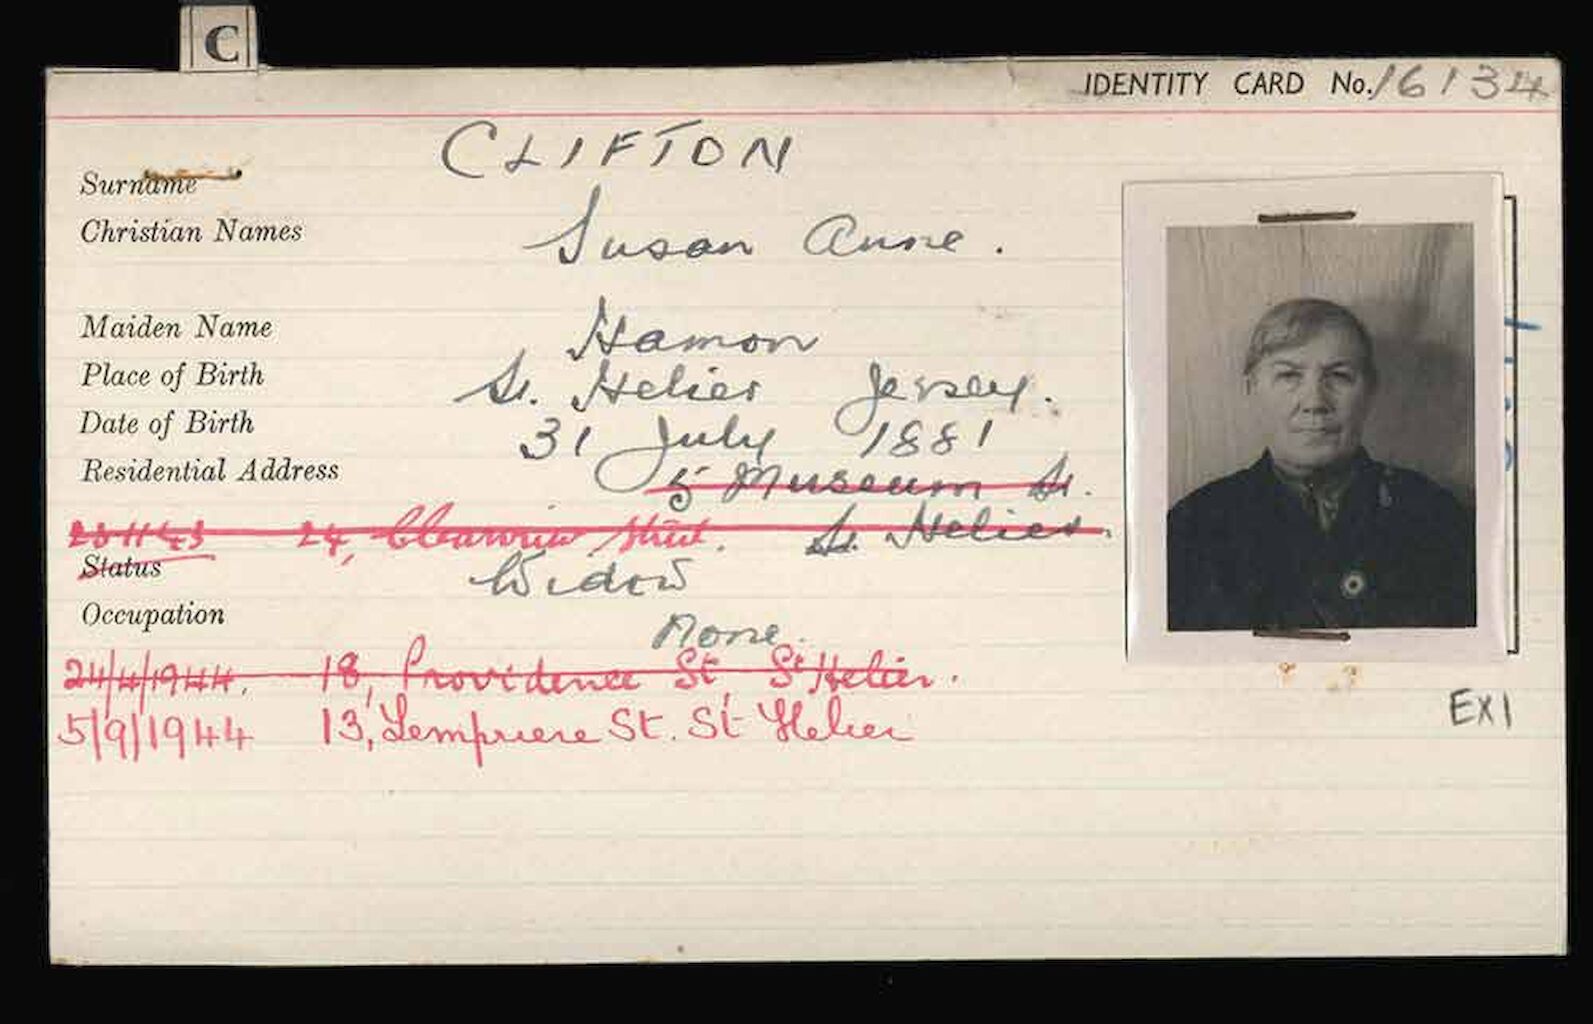 C
IDENTITY CARD No. 16134
Surname CLIFTON
Christian Names Susan Anne.
Maiden Name Hamon
Place of Birth St. Helier Jersey.
Date of Birth 31 July 1881
Residential Address 5 Museum St.
24, Clearview Street. St. Helier.
Status Widow
Occupation None.
24/4/1944. 18, Providence St, St Helier.
5/9/1944 13, Lempriere St. St Helier
EX1